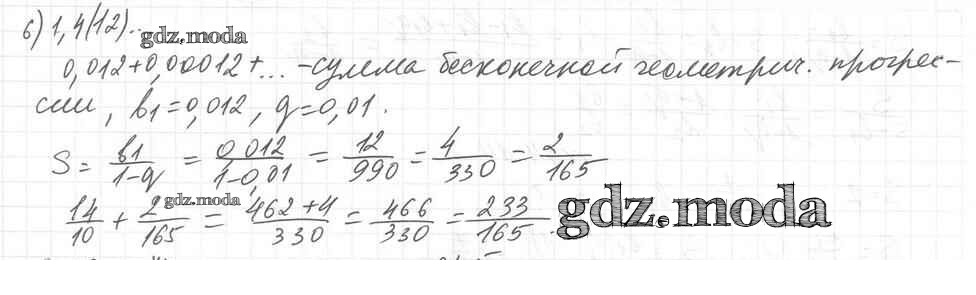 б) 1,4(12)...
gdz.moda
0,012+0,00012+... - сумма бесконечной геометрич. прогрес-
сии, b1=0,012, q=0,01.
S = b1/1-q = 0,012/1-0,01 = 12/990 = 4/330 = 2/165
gdz.moda
14/10 + 2/165 = 462+4/330 = 466/330 = 233/165.
gdz.moda